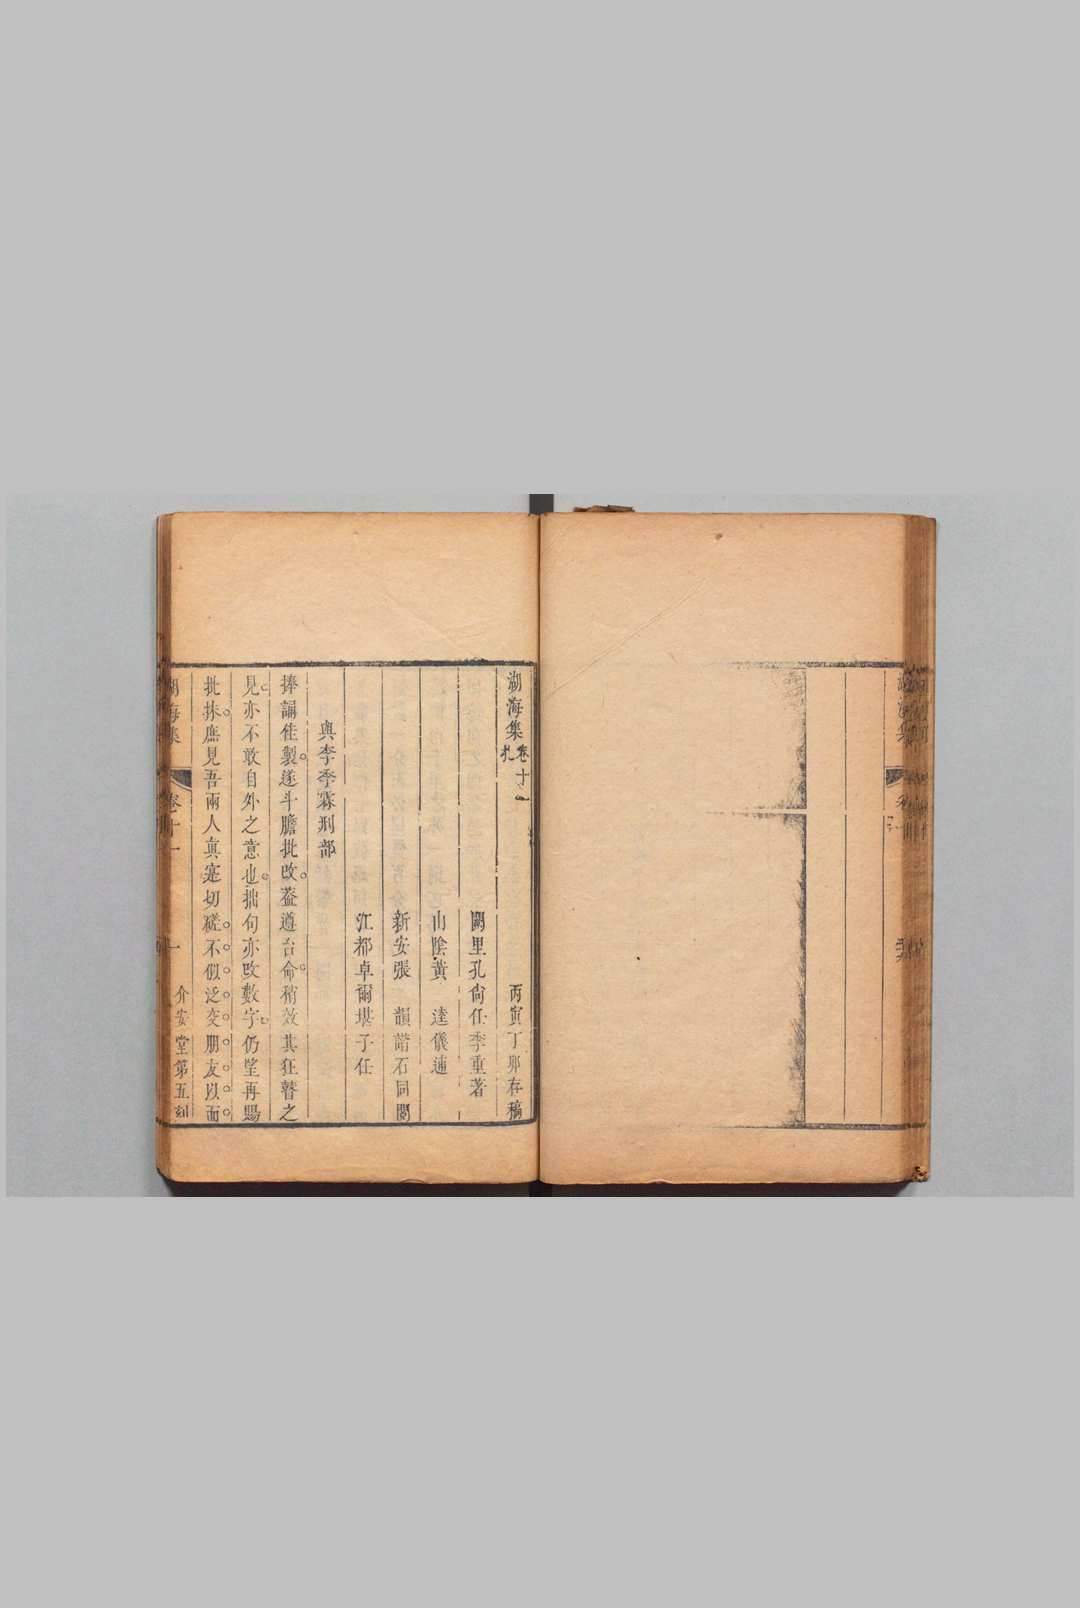 湖海集卷十一 札 丙寅丁卯存稿
闕里孔尙任季重著
山陰黃 逵儀逋
新安張 韻諧石同閱
江都卓爾堪子任
與李季霖刑部
捧誦佳製遂斗膽批改葢遵台命稍效其狂瞽之
見亦不敢自外之意也拙句亦改數字仍望再賜
批抹庶見吾兩人眞寔切磋不似泛交朋友以面
湖海集 卷十一 一 介安堂第五刻